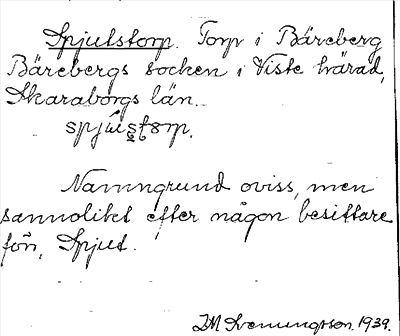 Spjutstorp. Torp i Bäreberg
Bärebergs socken i Viste härad,
Skaraborgs län.
spjústorp.
Namngrund oviss, men
sannolikt efter någon besittare
för, Spjut.
J M Svenungsson. 1939.